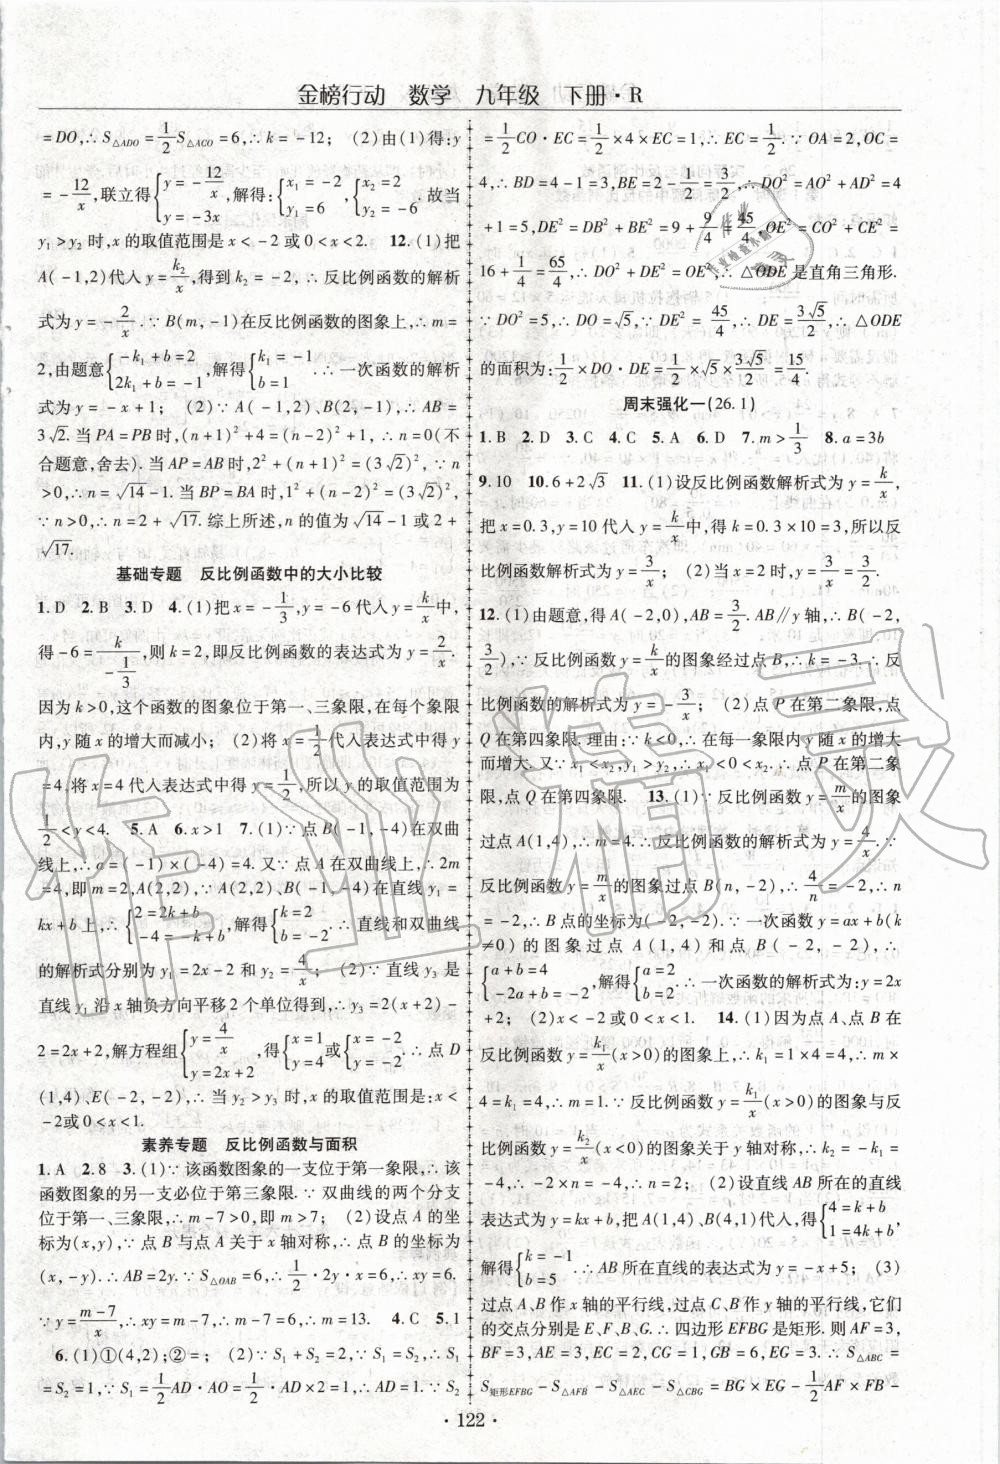 金榜行动 数学 九年级 下册·R
=DO,∴S△ADO=1/2S△ACO=6,∴k=-12; (2)由(1)得:y
=-12/x,联立得{y=-12/x, y=-3x,解得:{x₁=-2, y₁=6,{x₂=2, y₂=-6.故当
y₁>y₂时,x的取值范围是x<-2或0<x<2. 12.(1)把
A(-1,2)代入y=k₂/x,得到k₂=-2,∴反比例函数的解析
式为y=-2/x.∵B(m,-1)在反比例函数的图象上,∴m=
2,由题意{-k₁+b=2, 2k₁+b=-1,解得{k₁=-1, b=1.∴一次函数的解析
式为y=-x+1; (2)∵A(-1,2),B(2,-1),∴AB=
3√2.当PA=PB时,(n+1)²+4=(n-2)²+1,∴n=0(不
合题意,舍去).当AP=AB时,2²+(n+1)²=(3√2)².∵n
>0,∴n=√14-1.当BP=BA时,1²+(n-2)²=(3√2)².
∵n>0,∴n=2+√17.综上所述,n的值为√14-1或2+
√17.
基础专题 反比例函数中的大小比较
1.D 2.B 3.D 4.(1)把x=-1/3,y=-6代入y=k/x中,
得-6=k/(-1/3),则k=2,即反比例函数的表达式为y=2/x.
因为k>0,这个函数的图象位于第一、三象限,在每个象限
内,y随x的增大而减小; (2)将x=1/2代入表达式中得y
=4,将x=4代入表达式中得y=1/2,所以y的取值范围为
1/2<y<4. 5.A 6.x>1 7.(1)∵点B(-1,-4)在双曲
线上,∴a=(-1)×(-4)=4.又∵点A在双曲线上,∴2m
=4,即m=2,A(2,2),∵A(2,2),B(-1,-4)在直线y₁=
kx+b上,∴{2=2k+b, -4=-k+b,解得{k=2, b=-2.∴直线和双曲线
的解析式分别为y₁=2x-2和y₂=4/x; (2)∵直线y₃是
直线y₁沿x轴负方向平移2个单位得到,∴y₃=2(x+2)-
2=2x+2,解方程组{y=4/x, y=2x+2得{x=1, y=4或{x=-2, y=-2.∴点D
(1,4),E(-2,-2),∴当y₂>y₃时,x的取值范围是:x<
-2或0<x<1.
素养专题 反比例函数与面积
1.A 2.8 3.(1)∵该函数图象的一支位于第一象限,∴该
函数图象的另一支必位于第三象限.∵双曲线的两个分支
位于第一、三象限,∴m-7>0,即m>7; (2)设点A的坐
标为(x,y),∵点B与点A关于x轴对称,∴点B的坐标为
(x,-y),∴AB=2y.∵S△OAB=6,∴1/2·2y·x=6,∴xy=6.
∵y=(m-7)/x,∴xy=m-7,∴m-7=6,∴m=13. 4.C 5.1
6.(1)①(4,2);②=; (2)∵S₁+S₂=2,S₁=S₂,∴S₁
=S₂=1,∵S₁=1/2AD·AO=1/2AD·2=1,∴AD=1.∵S₂
=1/2CO·EC=1/2×4×EC=1,∴EC=1/2.∵OA=2,OC=
4,∴BD=4-1=3,BE=2-1/2=3/2,∴DO²=AO²+AD²=4
+1=5,DE²=DB²+BE²=9+9/4=45/4,OE²=CO²+CE²=
16+1/4=65/4,∴DO²+DE²=OE²,∴△ODE是直角三角形.
∵DO²=5,∴DO=√5,∵DE²=45/4,∴DE=3√5/2,∴△ODE
的面积为:1/2×DO·DE=1/2×√5×3√5/2=15/4.
周末强化一(26.1)
1.B 2.D 3.C 4.C 5.A 6.D 7.m>1/3 8.a=3b
9.10 10.6+2√3 11.(1)设反比例函数解析式为y=k/x,
把x=0.3,y=10代入y=k/x中,得k=0.3×10=3,所以反
比例函数解析式为y=3/x; (2)当x=2时,y=3/x=3/2.
12.(1)由题意,得A(-2,0),AB=3/2.AB∥y轴,∴B(-2,
3/2),∵反比例函数y=k/x的图象经过点B,∴k=-3.∴反
比例函数的解析式为y=-3/x; (2)点P在第二象限,点
Q在第四象限.理由:∵k<0,∴在每一象限内y随x的增大
而增大.又∵x₁<x₂,y₁>y₂,∴x₁<0<x₂.∴点P在第二象
限,点Q在第四象限. 13.(1)∵反比例函数y=m/x的图象
过点A(1,4),∴m=4.∴反比例函数的解析式为y=4/x.∵
反比例函数y=m/x的图象过点B(n,-2),∴4/n=-2,∴n
=-2,∴B点的坐标为(-2,-2).∵一次函数y=ax+b(k
≠0)的图象过点A(1,4)和点B(-2,-2),∴
{a+b=4, -2a+b=-2,解得{a=2, b=2.∴一次函数的解析式为:y=2x
+2; (2)-2<x<0或x>1. 14.(1)因为点A、点B在
反比例函数y=k₁/x(x>0)的图象上,∴k₁=1×4=4,∴m×
4=k₁=4,∴m=1.∵反比例函数y=k₁/x(x>0)的图象与反
比例函数y=k₂/x(x<0)的图象关于y轴对称,∴k₂=-k₁=
-4,∴-4=-2×n,∴n=2; (2)设直线AB所在的直线
表达式为y=kx+b,把A(1,4),B(4,1)代入,得{4=k+b, 1=4k+b,
解得{k=-1, b=5.∴AB所在直线的表达式为:y=-x+5; (3)
过点A、B作x轴的平行线,过点C、B作y轴的平行线,它们
的交点分别是E、F、B、G.∴四边形EFBG是矩形.则AF=3,
BF=3,AE=3,EC=2,CG=1,GB=6,EG=3,∴S△ABC=
S矩形EFBG-S△AFB-S△AEC-S△CBG=BG×EG-1/2AF×FB-
·122·
作业精灵